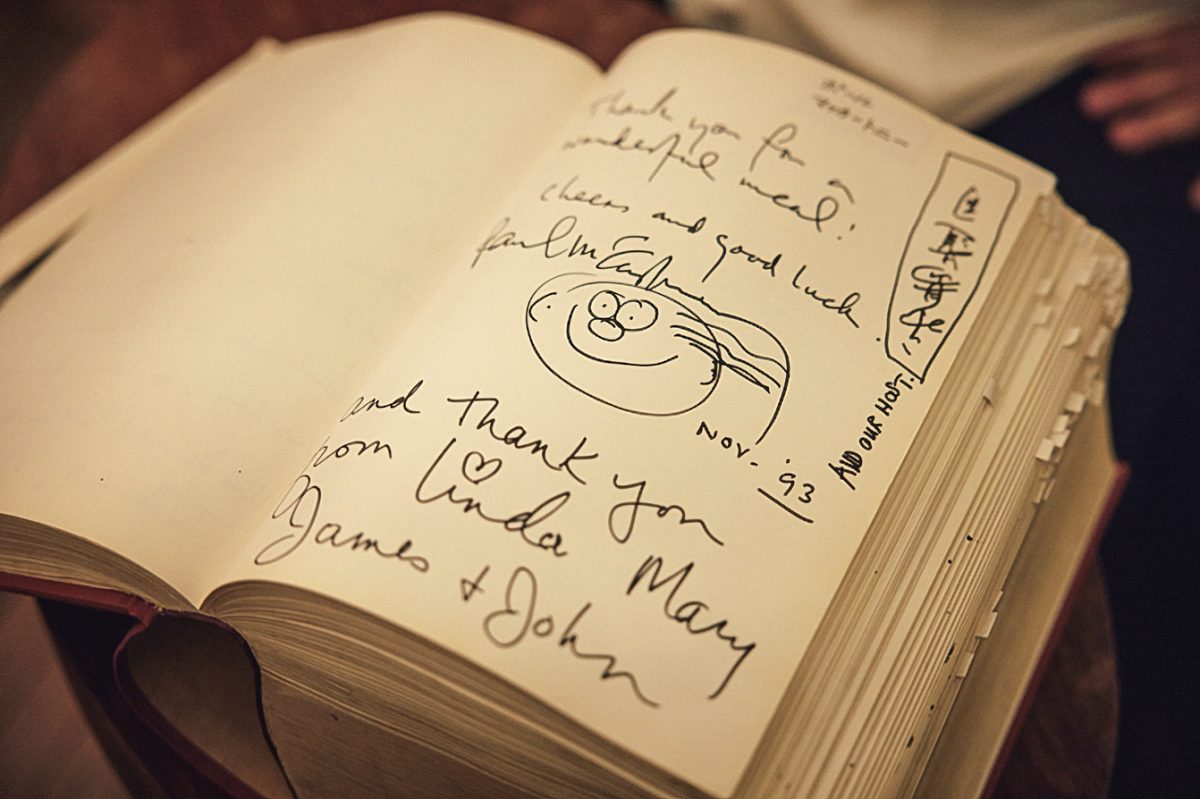 Thank you for a
wonderful meal!
cheers and good luck
Paul McCartney
NOV- '93
AND OUR HOST!
and Thank you
from Linda Mary
James + John